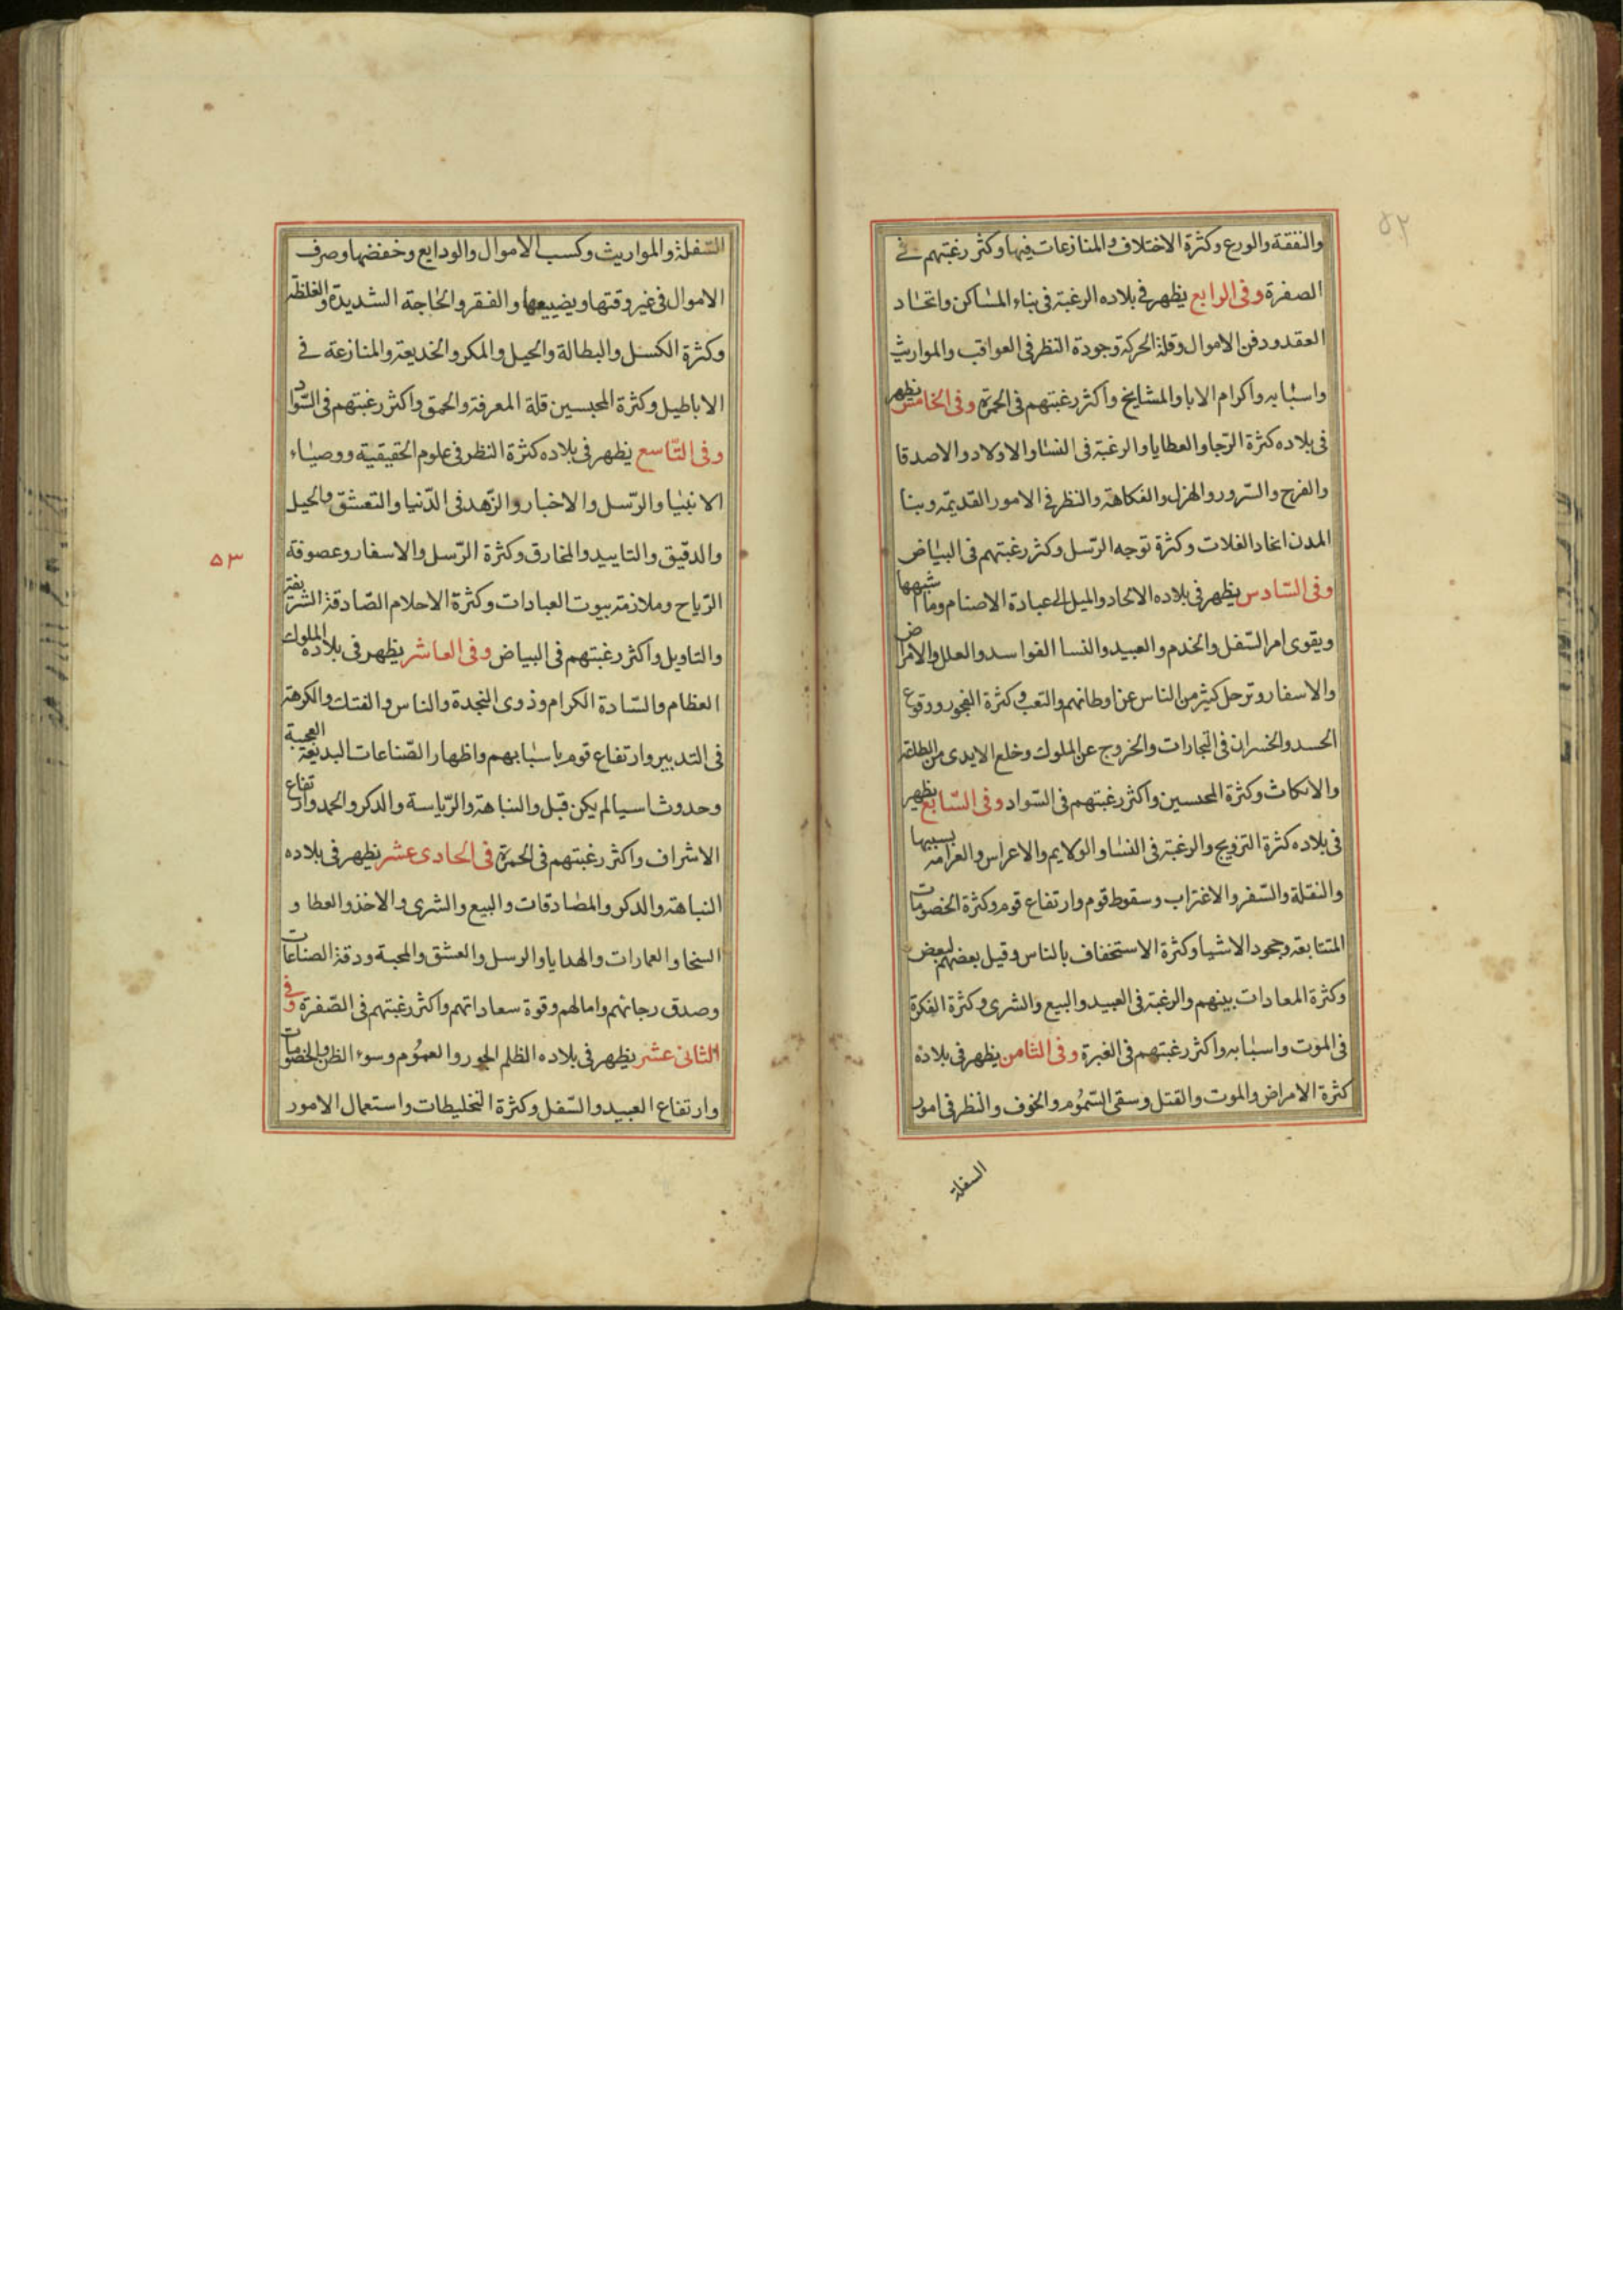 ٥٢
والنفقة والورع وكثرة الاختلاف والمنازعات فيها وكثر رغبتهم في
الصفرة وفى الرابع يظهر فى بلاده الرغبة فى بناء المساكن واتخاد
العقد ودفن الاموال وقلة الحركة وجودة النظر فى العواقب والمواريث
واسبابه واكرام الابا والمشايخ واكثر رغبتهم فى الحمرة وفى الخامس يظهر
فى بلاده كثرة الرجا والعطايا والرغبة فى النسا والاولاد والاصدقا
والفرح والسرور والهزل والفكاهة والنظر فى الامور القديمة وبنا
المدن اتخاد الغلات وكثرة توجه الرسل وكثر رغبتهم فى البياض
وفى السادس يظهر فى بلاده الالحاد والميل الى عبادة الاصنام وما شبهها
ويقوى امر السفل والخدم والعبيد والنسا الفواسد والعلل والامراض
والاسفار وترحل كثير من الناس عن اوطانهم والتعب وكثرة الفجور ووقوع
الحسد والخسران فى التجارات والخروج عن الملوك وخلع الايدى من الطاعة
والانكاث وكثرة المحبسين واكثر رغبتهم فى السواد وفى السابع يظهر
فى بلاده كثرة التزويج والرغبة فى النسا والولايم والاعراس والغرامة بسببها
والنقلة والسفر والاغتراب وسقوط قوم وارتفاع قوم وكثرة الخصومات
المتتابعة وجحود الاشيا وكثرة الاستخفاف بالناس وقيل بعضهم لبعض
وكثرة المعادات بينهم والرغبة فى العبيد والبيع والشرى وكثرة الفكرة
فى الموت واسبابه واكثر رغبتهم فى الغبرة وفى الثامن يظهر فى بلاده
كثرة الامراض والموت والقتل وسقى السموم والخوف والنظر فى امور
السفلة
السفلة والمواريث وكسب الاموال والودايع وخفضها وصرف
الاموال فى غير وقتها ويضييعها والفقر والحاجة الشديدة والغلظة
وكثرة الكسل والبطالة والحيل والمكر والخديعة والمنازعة في
الاباطيل وكثرة المحبسين قلة المعرفة والحمق واكثر رغبتهم فى السواد
وفى التاسع يظهر فى بلاده كثرة النظر فى علوم الحقيقية ووصياء
الانبيا والرسل والاخبار والزهد فى الدنيا والتعشق والحيل
والدقيق والتاييد والمخارق وكثرة الرسل والاسفار وعصوفة
٥٣
الرياح وملازمة بيوت العبادات وكثرة الاحلام الصادقة الشريفة
والتاويل واكثر رغبتهم فى البياض وفى العاشر يظهر فى بلاده الملوك
العظام والسادة الكرام وذوى النجدة والناس والفتك والكرهة
فى التدبير وارتفاع قوم باسبابهم واظهار الصناعات البديعة العجيبة
وحدوث اسيا لم يكن قبل والنباهة والرياسة والدكر والحمد وارتفاع
الاشراف واكثر رغبتهم فى الحمرة فى الحادى عشر يظهر فى بلاده
النباهة والدكر والمصادقات والبيع والشرى والاخذ والعطا و
السخا والعمارات والهدايا والرسل والعشق والمحبة ودقة الصناعات
وصدق رجائهم وامالهم وقوة سعاداتهم واكثر رغبتهم فى الصفرة وفي
الثانى عشر يظهر فى بلاده الظلم الجور والعموم وسوء الظن والخصومات
وارتفاع العبيد والسفل وكثرة التخليطات واستعمال الامور